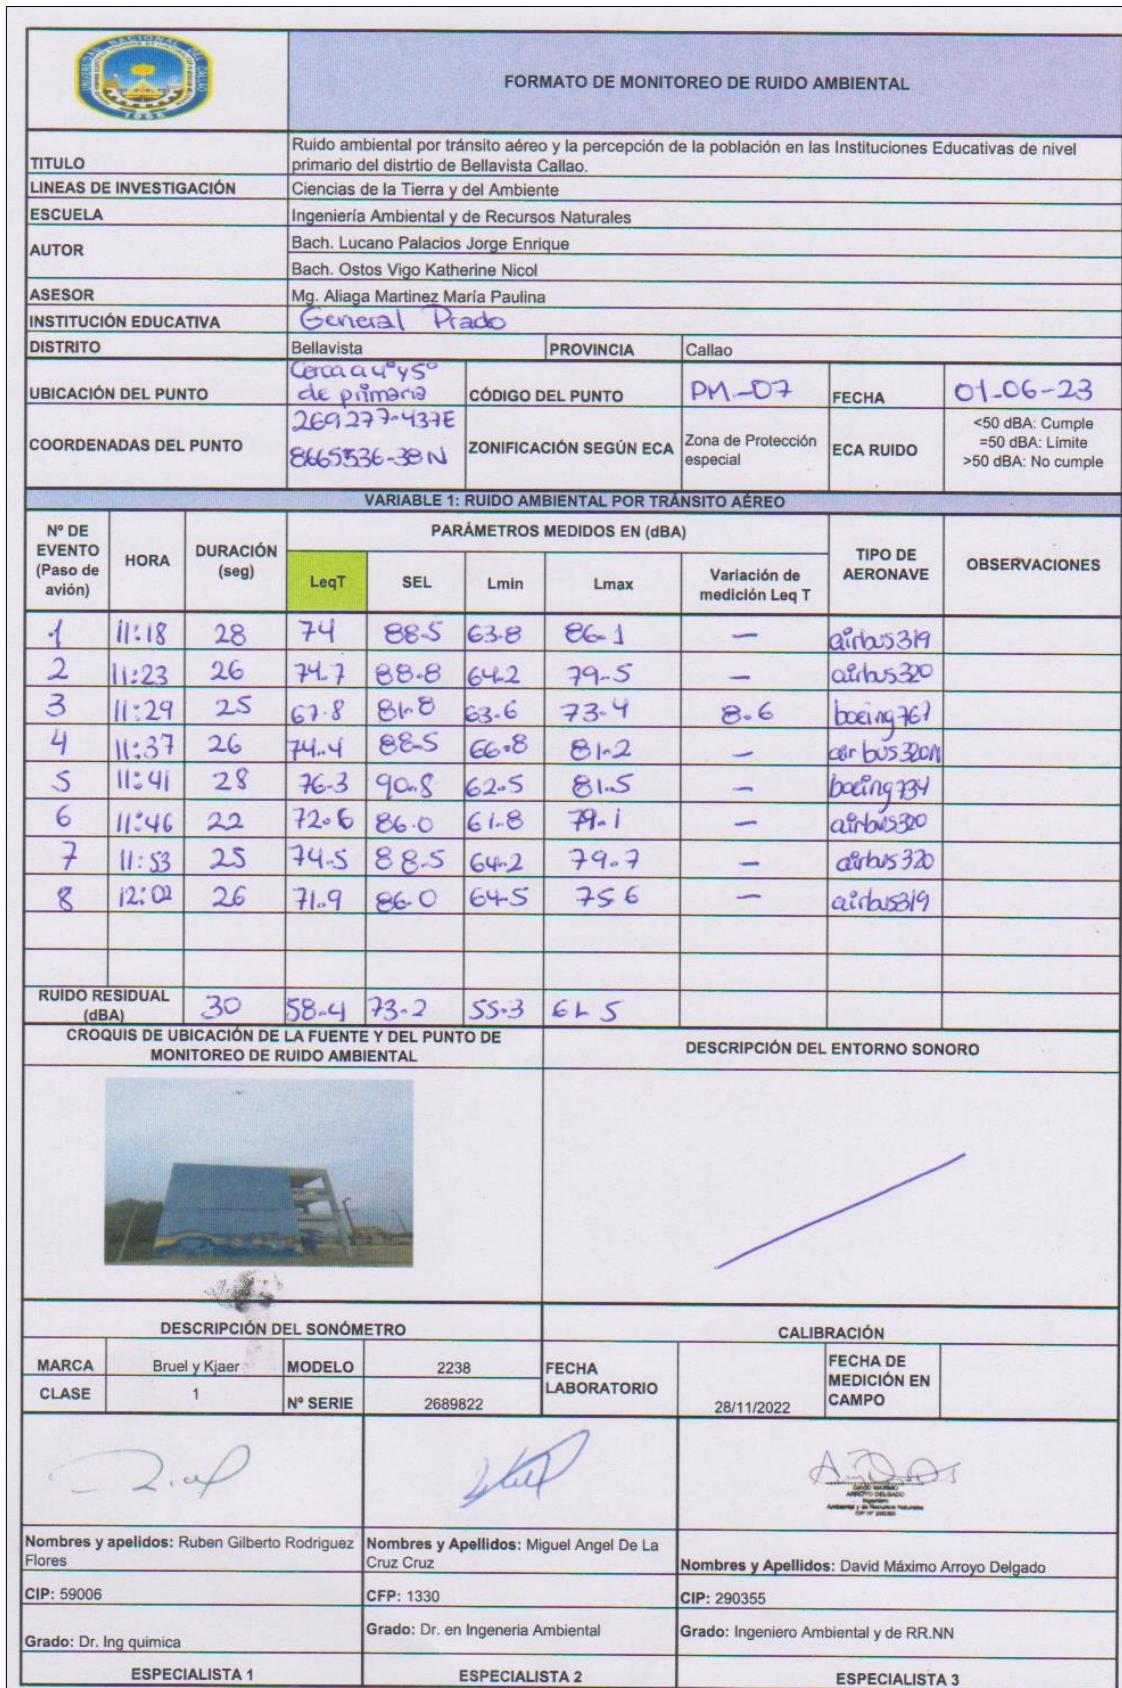 UNIVERSIDAD NACIONAL DEL CALLAO
1966
FORMATO DE MONITOREO DE RUIDO AMBIENTAL
TITULO
Ruido ambiental por tránsito aéreo y la percepción de la población en las Instituciones Educativas de nivel
primario del distrtio de Bellavista Callao.
LINEAS DE INVESTIGACIÓN Ciencias de la Tierra y del Ambiente
ESCUELA Ingeniería Ambiental y de Recursos Naturales
AUTOR Bach. Lucano Palacios Jorge Enrique
Bach. Ostos Vigo Katherine Nicol
ASESOR Mg. Aliaga Martinez María Paulina
INSTITUCIÓN EDUCATIVA General Prado
DISTRITO Bellavista PROVINCIA Callao
UBICACIÓN DEL PUNTO Cerca a 4° y 5° de primaria CÓDIGO DEL PUNTO PM-07 FECHA 01-06-23
COORDENADAS DEL PUNTO 269277.437E 8665536.38N ZONIFICACIÓN SEGÚN ECA Zona de Protección especial ECA RUIDO <50 dBA: Cumple =50 dBA: Límite >50 dBA: No cumple
VARIABLE 1: RUIDO AMBIENTAL POR TRÁNSITO AÉREO
Nº DE EVENTO (Paso de avión) HORA DURACIÓN (seg) PARÁMETROS MEDIDOS EN (dBA) TIPO DE AERONAVE OBSERVACIONES
LeqT SEL Lmin Lmax Variación de medición Leq T
1 11:18 28 74 88.5 63.8 86.1 — airbus319
2 11:23 26 74.7 88.8 64.2 79.5 — airbus320
3 11:29 25 67.8 81.8 63.6 73.4 8.6 boeing767
4 11:37 26 74.4 88.5 66.8 81.2 — airbus320N
5 11:41 28 76.3 90.8 62.5 81.5 — boeing734
6 11:46 22 72.6 86.0 61.8 79.1 — airbus320
7 11:53 25 74.5 88.5 64.2 79.7 — airbus320
8 12:02 26 71.9 86.0 64.5 75.6 — airbus319
RUIDO RESIDUAL (dBA) 30 58.4 73.2 55.3 61.5
CROQUIS DE UBICACIÓN DE LA FUENTE Y DEL PUNTO DE
MONITOREO DE RUIDO AMBIENTAL
DESCRIPCIÓN DEL ENTORNO SONORO
DESCRIPCIÓN DEL SONÓMETRO
CALIBRACIÓN
MARCA Bruel y Kjaer MODELO 2238 FECHA LABORATORIO 28/11/2022 FECHA DE MEDICIÓN EN CAMPO
CLASE 1 Nº SERIE 2689822
DAVID MAXIMO
ARROYO DELGADO
Ingeniero
Ambiental y de Recursos Naturales
CIP Nº 290355
Nombres y apelidos: Ruben Gilberto Rodriguez
Flores
CIP: 59006
Grado: Dr. Ing quimica
ESPECIALISTA 1
Nombres y Apellidos: Miguel Angel De La
Cruz Cruz
CFP: 1330
Grado: Dr. en Ingeneria Ambiental
ESPECIALISTA 2
Nombres y Apellidos: David Máximo Arroyo Delgado
CIP: 290355
Grado: Ingeniero Ambiental y de RR.NN
ESPECIALISTA 3